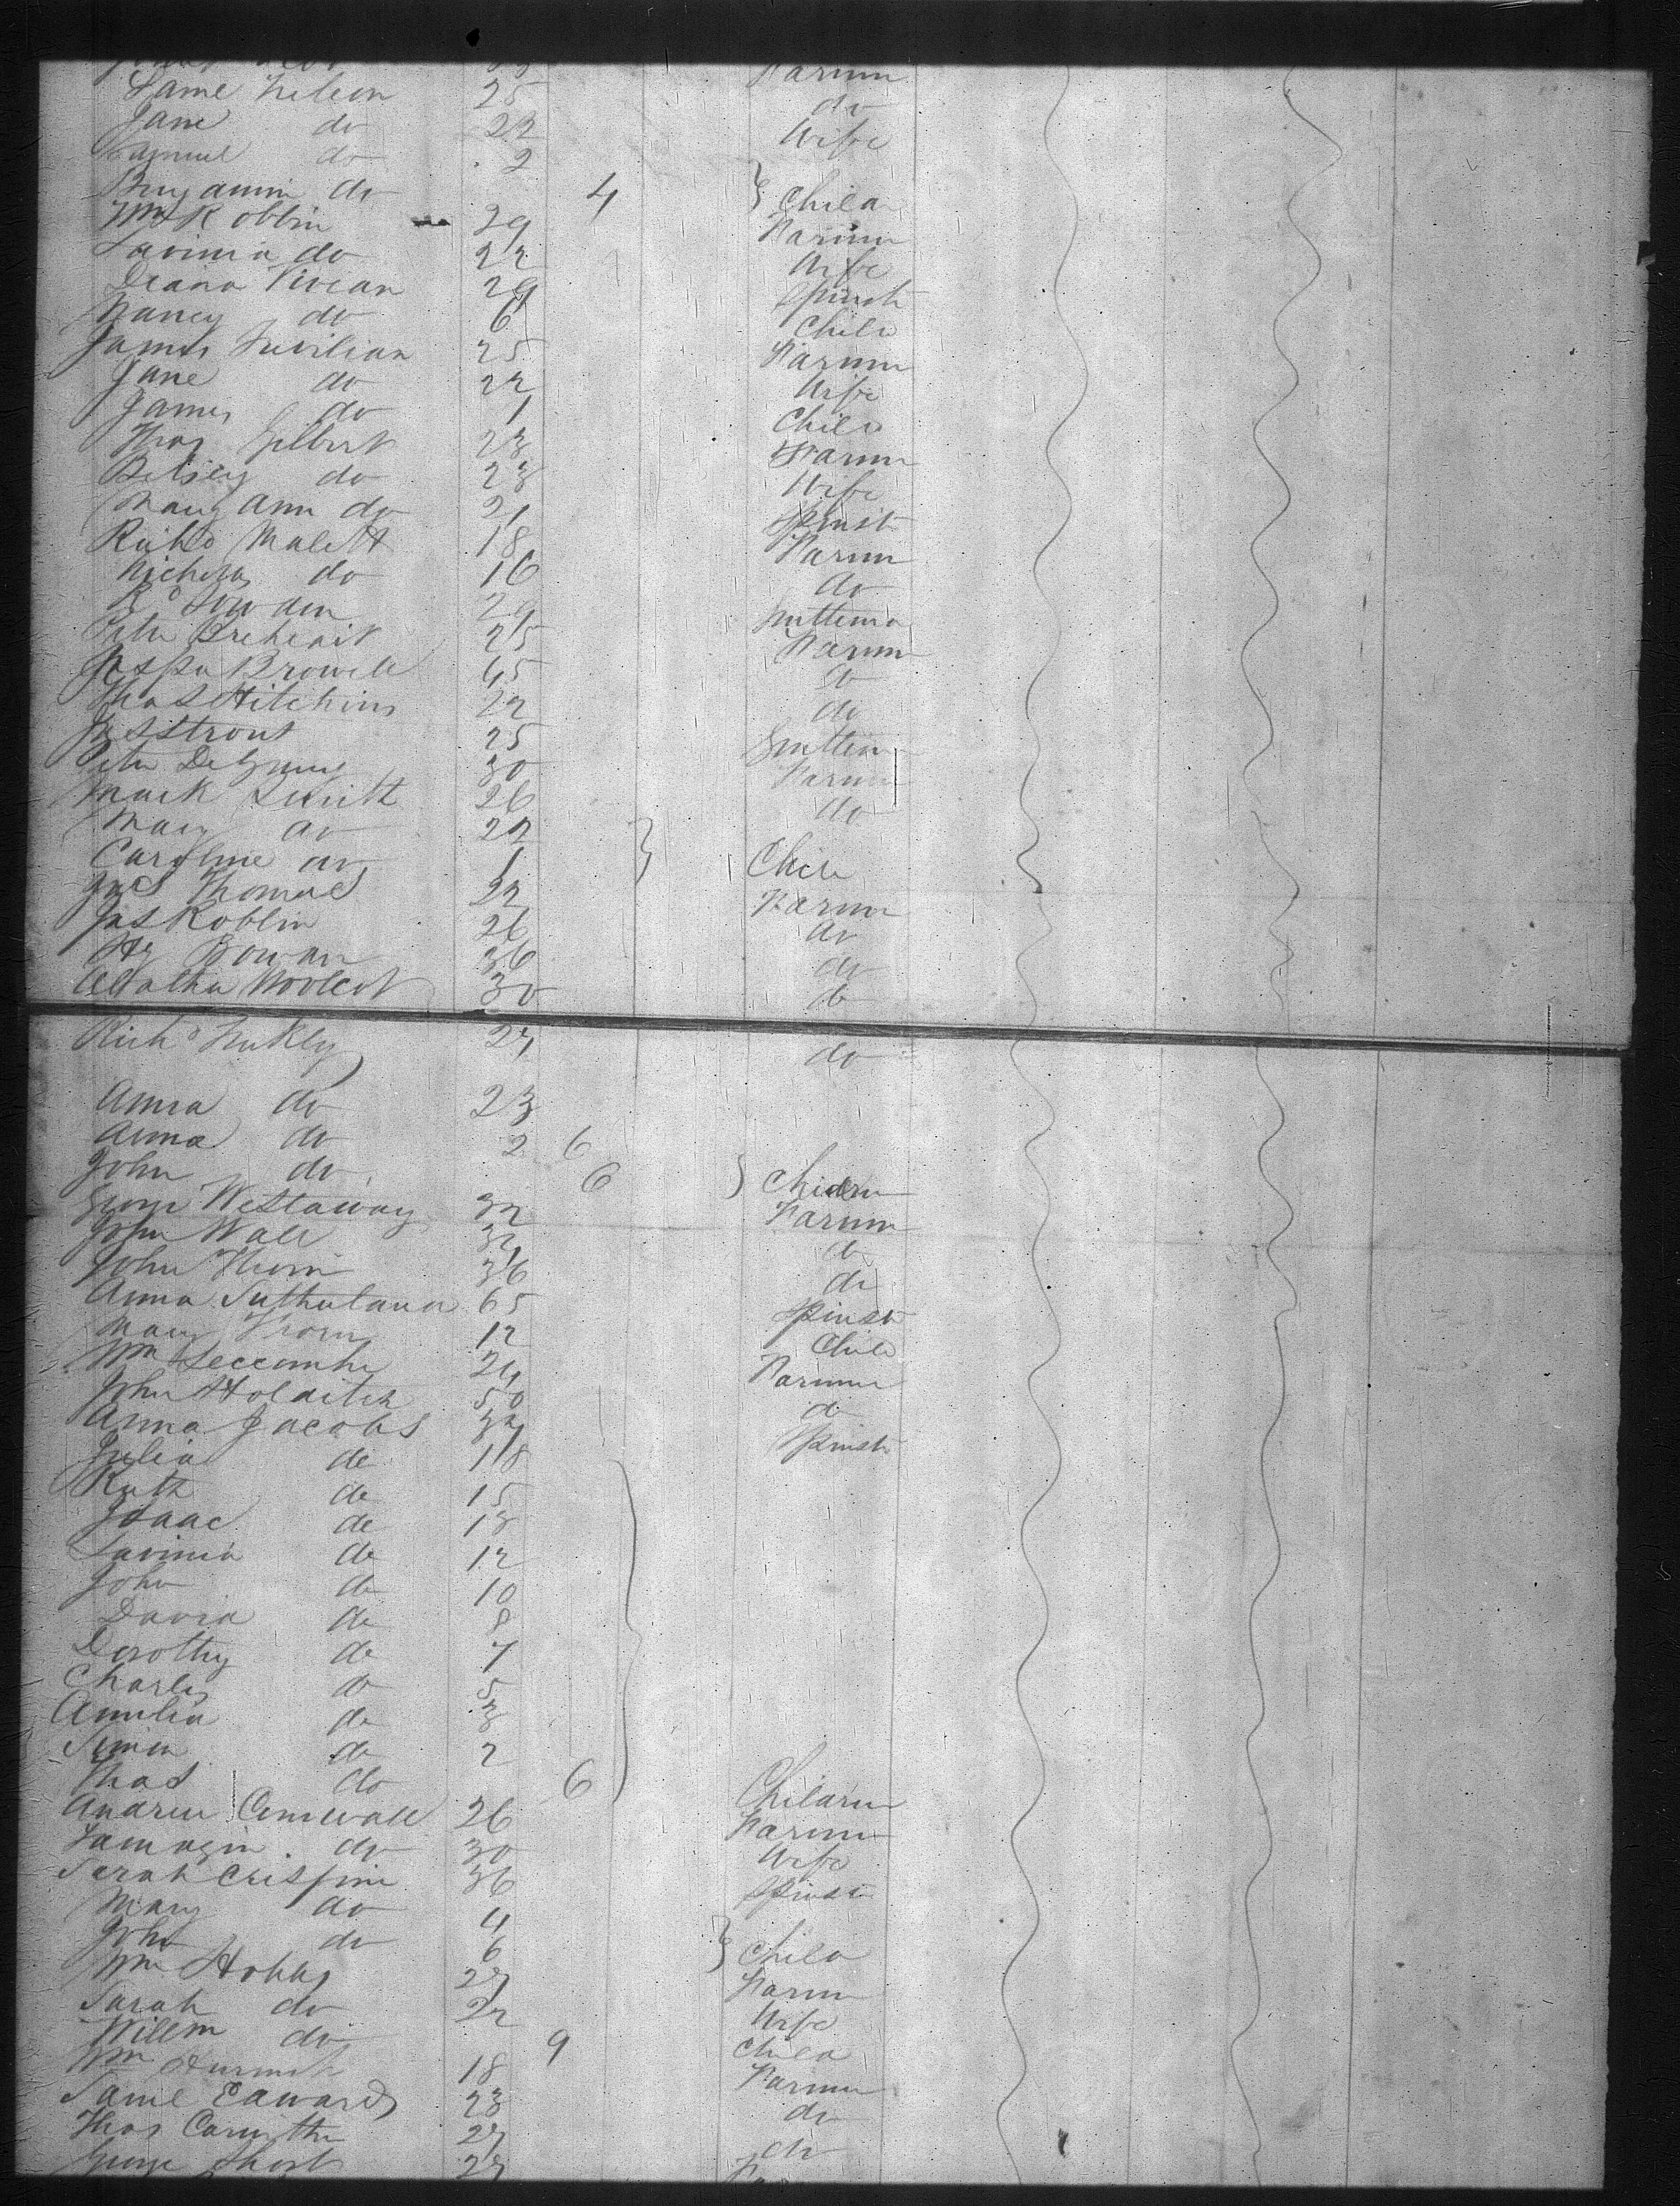 Farmr
Saml Nelson 25 do
Jane do 22 Wife
Samuel do 2
Benjamin do 4 } Child
Wm Robbin 29 Farmr
Lavinia do 22 Wife
Deana Vivean 29 Spinstr
Nancy do 6 Child
James 25 Farmr
Jane do 22 Wife
James do 1 Child
Thos Gilbert 23 Farmr
Betsey do 23 Wife
Mary Ann do 21 Spinst
Richd Malett 18 Farmr
Nicholas do 16 do
29
Peter 25 Farmr
Browell 45 do
Thos Hitchins 22 do
Jas Strout 25
Peter 30 Farmr
Mark 26 do
Mary do 22
Caroline do 1 } Child
Jas Thomas 22 Farmr
Jas Roblin 26 do
Hy Bowan 36 do
Woolcot 30 do
Richd 27 do
Anna do 23
Anna do 2 6
John do 6 } Childrn
George Westaway 32 Farmr
John Wall 32 do
John Thorn 36 do
Anna Sutherland 65 Spinst
Mary Thorn 12 Child
Wm Seccombe 24 Farmer
John Holditch 50 do
Anna Jacobs 37 Spinstr
Julia do 18
Ruth do 15
Isaac do 13
Lavinia do 12
John do 10
David do 8
Dorothy do 7
Charles do 5
Amelia do 3
Simon do 2
Thos do 6 } Childrn
Andrew Cornwall 26 Farmr
Tamazin do 30 Wife
Sarah Crispin 36 Spinst
Mary do 4
John do 6 } Child
Wm Hobbs 27 Farmr
Sarah do 22 Wife
Willm do 9 Child
Wm 18 Farmr
Saml Edwards 23 do
Thos 27 do
George Short 27